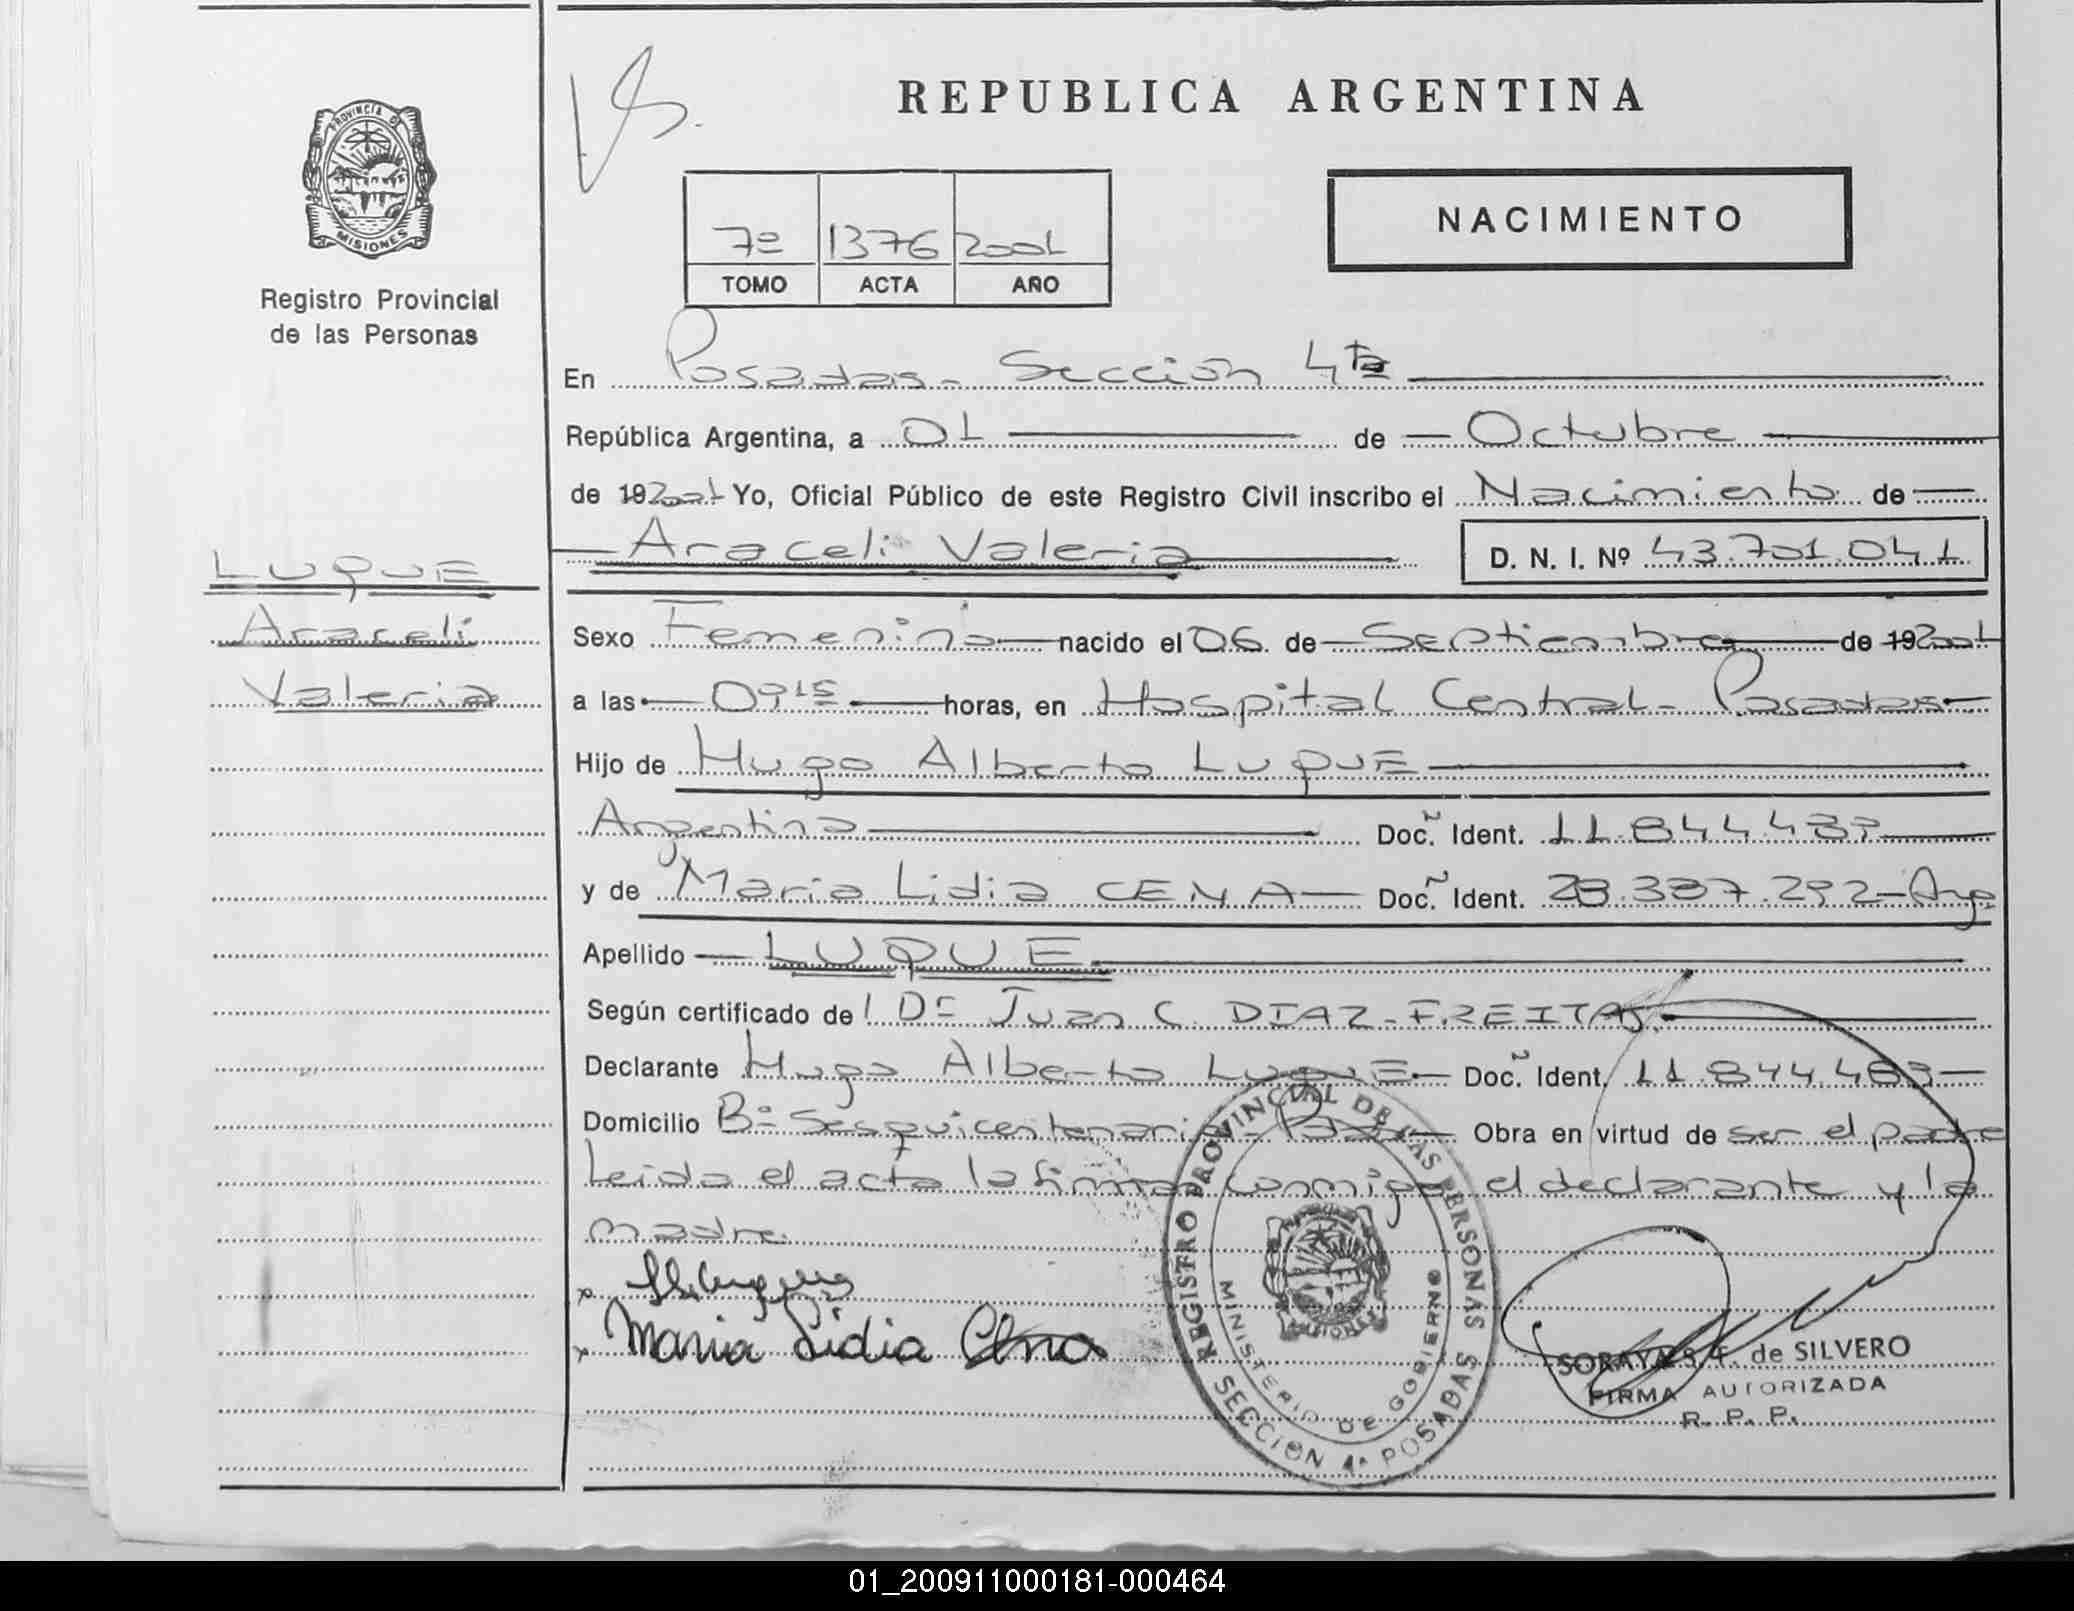 REPUBLICA ARGENTINA
PROVINCIA DE
MISIONES
Registro Provincial
de las Personas
NACIMIENTO
7º 1376 2001
TOMO ACTA AÑO
En Posadas - Sección 4ta
República Argentina, a 01 de Octubre
de 192001 Yo, Oficial Público de este Registro Civil inscribo el Nacimiento de
Araceli Valeria D. N. I. Nº 43.701.041
LUQUE
Araceli
Valeria
Sexo Femenino nacido el 06 de Septiembre de 192001
a las 09 15 horas, en Hospital Central - Posadas
Hijo de Hugo Alberto LUQUE
Argentino Doc. Ident. 11.844.483
y de María Lidia CENA Doc. Ident. 28.337.292 - Arg
Apellido LUQUE
Según certificado del Dr Juan C. DIAZ - FREITAS.
Declarante Hugo Alberto LUQUE Doc. Ident. 11.844.483
Domicilio Bº Sesquicentenario - Obra en virtud de ser el padre
Leida el acta la firman conmigo el declarante y la
madre.
Maria Lidia Cena
REGISTRO PROVINCIAL DE LAS PERSONAS
MINISTERIO DE GOBIERNO
SECCION 4a POSADAS
SORAYA S. T. de SILVERO
FIRMA AUTORIZADA
R. P. P.
01_200911000181-000464